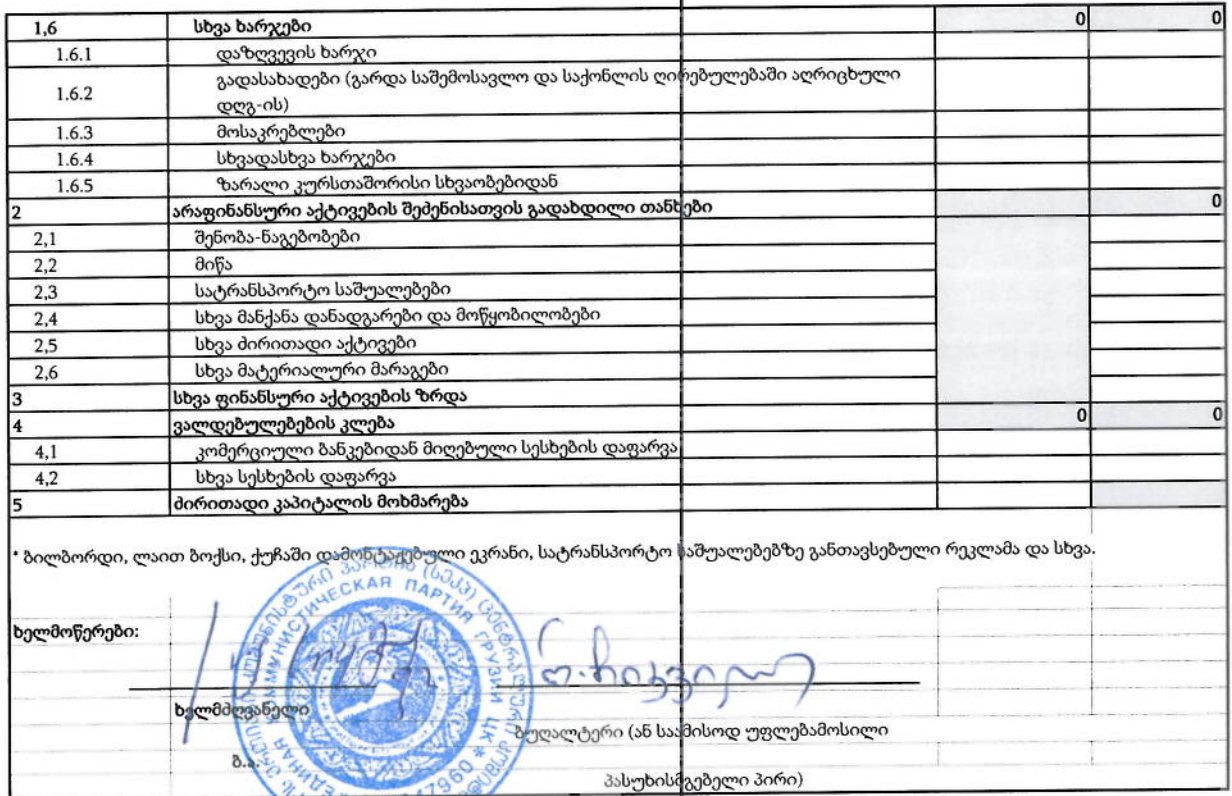 1,6 სხვა ხარჯები 0 0
1.6.1 დაზღვევის ხარჯი
1.6.2 გადასახადები (გარდა საშემოსავლო და საქონლის ღირებულებაში აღრიცხული
დღგ-ის)
1.6.3 მოსაკრებლები
1.6.4 სხვადასხვა ხარჯები
1.6.5 ზარალი კურსთაშორისი სხვაობებიდან
2 არაფინანსური აქტივების შეძენისათვის გადახდილი თანხები 0
2,1 შენობა-ნაგებობები
2,2 მიწა
2,3 სატრანსპორტო საშუალებები
2,4 სხვა მანქანა დანადგარები და მოწყობილობები
2,5 სხვა ძირითადი აქტივები
2,6 სხვა მატერიალური მარაგები
3 სხვა ფინანსური აქტივების ზრდა
4 ვალდებულებების კლება 0 0
4,1 კომერციული ბანკებიდან მიღებული სესხების დაფარვა
4,2 სხვა სესხების დაფარვა
5 ძირითადი კაპიტალის მოხმარება
* ბილბორდი, ლაით ბოქსი, ქუჩაში დამონტაჟებული ეკრანი, სატრანსპორტო საშუალებებზე განთავსებული რეკლამა და სხვა.
ხელმოწერები:
ПАРТИЯ ГРУЗИИ ЦК *
ხელმძღვანელი
ბუღალტერი (ან საამისოდ უფლებამოსილი
ბ.ა.
პასუხისმგებელი პირი)